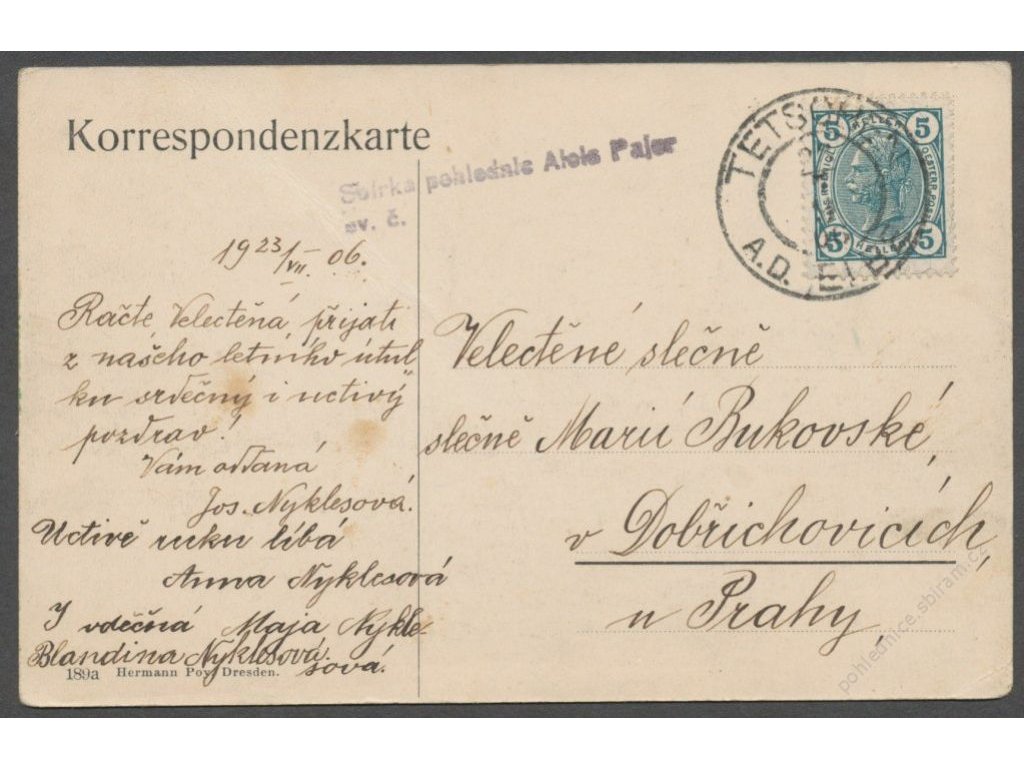 Korrespondenzkarte
Sbírka pohlednic Alois Pajer
ev. č.
19 23/VII. 06.
Račte Velectěná, přijati
z našeho letního útul„
ku srdečný i uctivý
pozdrav!
Vám oddaná
Jos. Nyklesová.
Uctivě ruku líbá
Anna Nyklesová
I vděčná Maja Nykle-
sová.
Blandina Nyklesová
189a Hermann Poy, Dresden.
TETSCHEN
A.D. ELBE
5 HELLER 5
5 HELLER 5
Velectěné slečně
slečně Marii Bukovské,
v Dobřichovicích,
u Prahy,
pohlednice.sbiram.cz